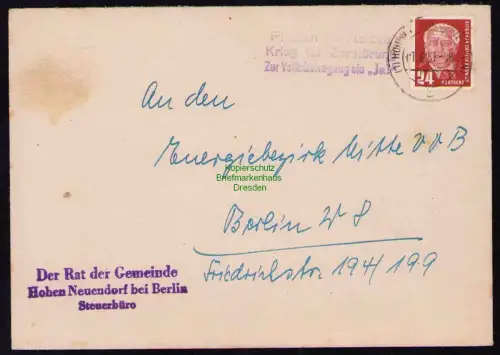 Krieg
Zur Volksbefragung ein „Ja"
24
An den
Energiebezirk Mitte VVB
Kopierschutz
Briefmarkenhaus
Dresden
Berlin W 8
Friedrichstr. 194/199
Der Rat der Gemeinde
Hohen Neuendorf bei Berlin
Steuerbüro